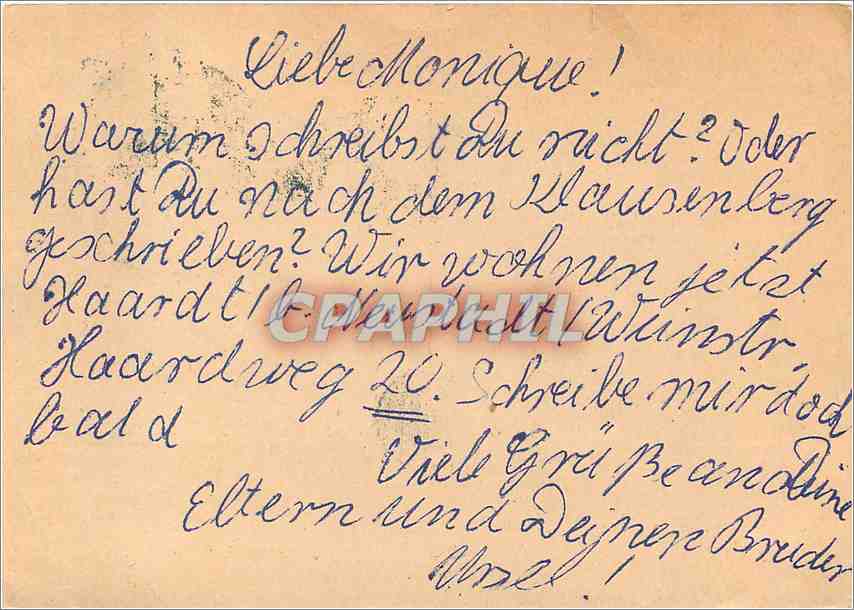 Liebe Monique!
Warum schreibst Du nicht? Oder
hast Du nach dem Klausenberg
geschrieben? Wir wohnen jetzt
Haardt/b. Neustadt/Weinstr.
CPAPHIL
Haardweg 20. Schreibe mir doch
bald
Viele Grüße an Deine
Eltern und Deinen Bruder
Ursel!